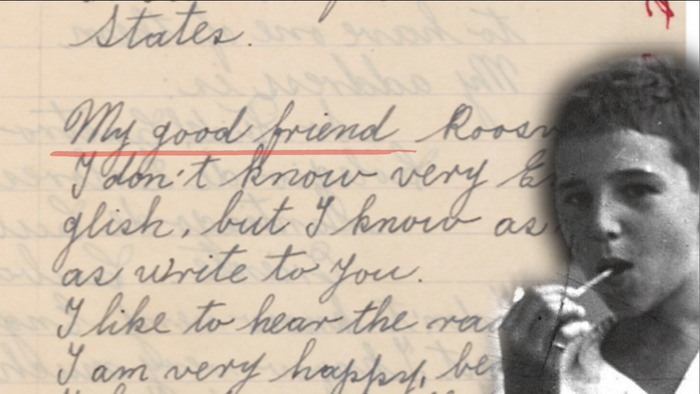 States.
My good friend Roosv
I don't know very E
glish, but I know as
as write to you.
I like to hear the ra
I am very happy, be